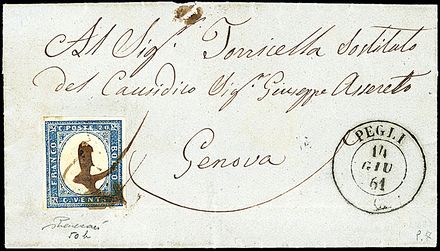 Al Sig.r Torricella Sostituto
del Causidico Sig.r Giuseppe Assereto
Genova
C. POSTE 20
FRANCO
BOLLO
C. VENTI
PEGLI
14
GIU
61
50 h